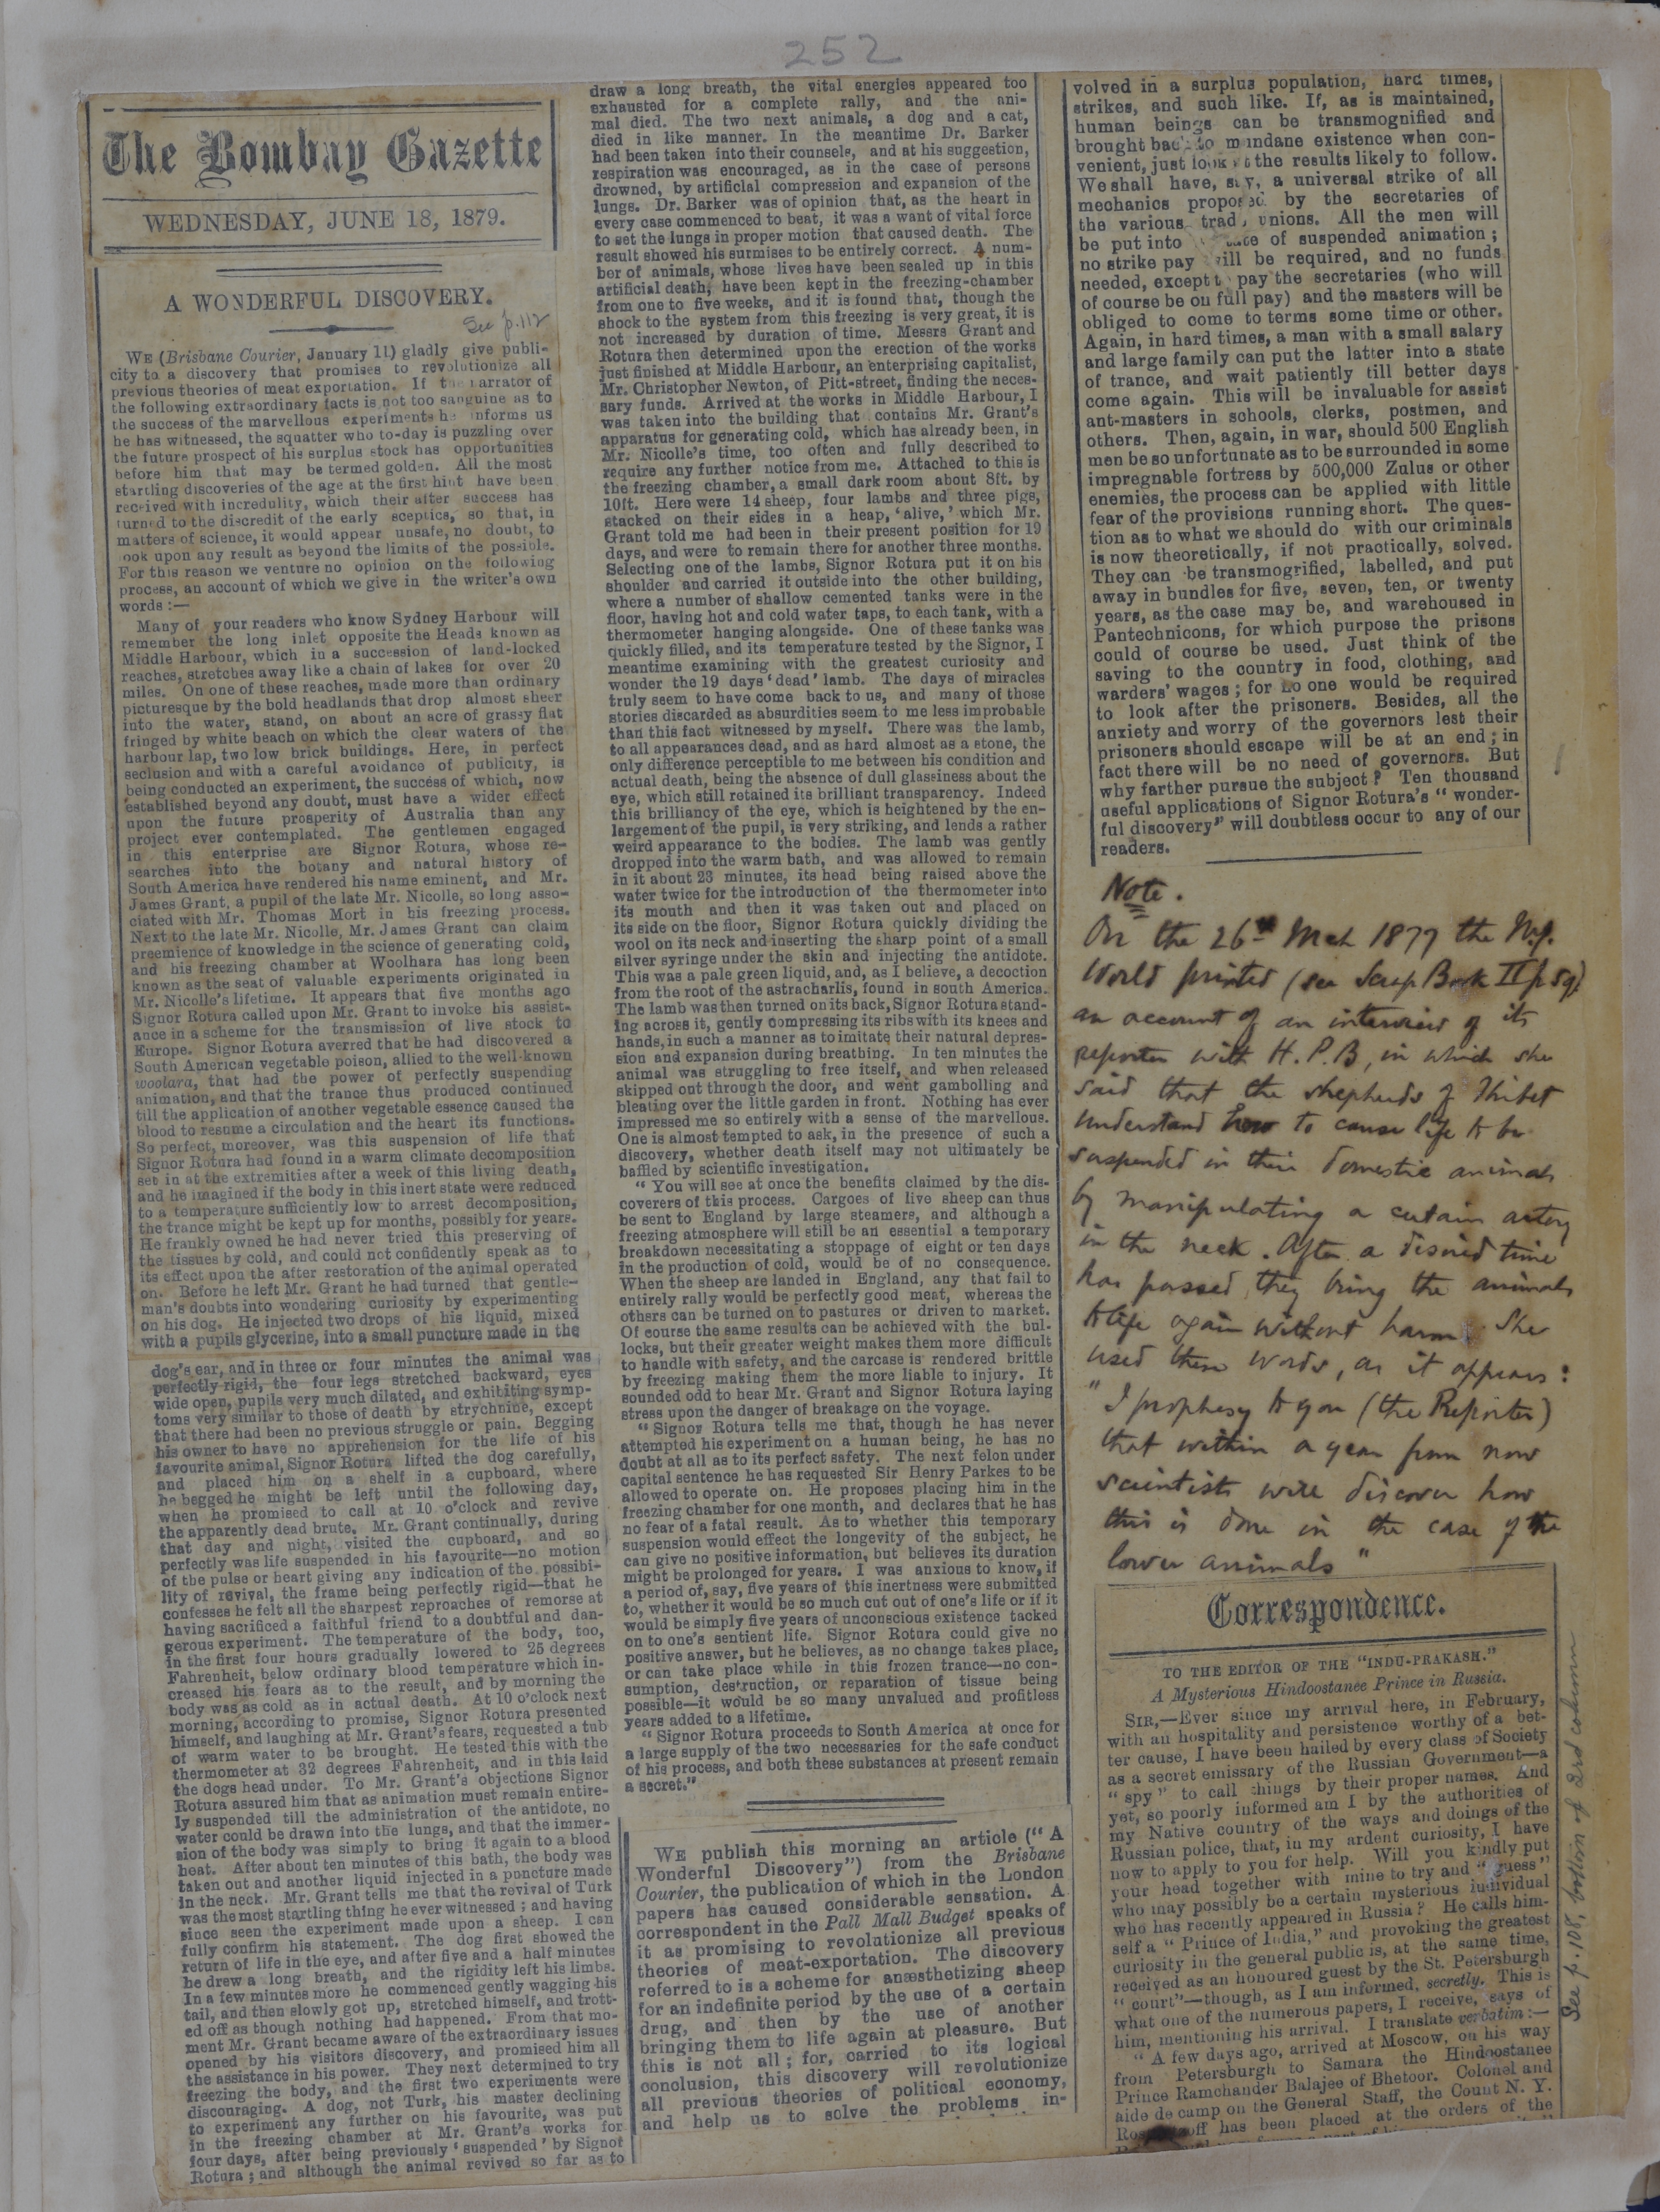 252
The Bombay Gazette
WEDNESDAY, JUNE 18, 1879.
A WONDERFUL DISCOVERY.
See p. 112
WE (Brisbane Courier, January 11) gladly give publi-
city to a discovery that promises to revolutionize all
previous theories of meat exportation. If the narrator of
the following extraordinary facts is not too sanguine as to
the success of the marvellous experiments he informs us
he has witnessed, the squatter who to-day is puzzling over
the future prospect of his surplus stock has opportunities
before him that may be termed golden. All the most
startling discoveries of the age at the first hint have been
received with incredulity, which their after success has
turned to the discredit of the early sceptics, so that, in
matters of science, it would appear unsafe, no doubt, to
look upon any result as beyond the limits of the possible.
For this reason we venture no opinion on the following
process, an account of which we give in the writer's own
words :—
Many of your readers who know Sydney Harbour will
remember the long inlet opposite the Heads known as
Middle Harbour, which in a succession of land-locked
reaches, stretches away like a chain of lakes for over 20
miles. On one of these reaches, made more than ordinary
picturesque by the bold headlands that drop almost sheer
into the water, stand, on about an acre of grassy flat
fringed by white beach on which the clear waters of the
harbour lap, two low brick buildings. Here, in perfect
seclusion and with a careful avoidance of publicity, is
being conducted an experiment, the success of which, now
established beyond any doubt, must have a wider effect
upon the future prosperity of Australia than any
project ever contemplated. The gentlemen engaged
in this enterprise are Signor Rotura, whose re-
searches into the botany and natural history of
South America have rendered his name eminent, and Mr.
James Grant, a pupil of the late Mr. Nicolle, so long asso-
ciated with Mr. Thomas Mort in his freezing process.
Next to the late Mr. Nicolle, Mr. James Grant can claim
preemience of knowledge in the science of generating cold,
and his freezing chamber at Woolhara has long been
known as the seat of valuable experiments originated in
Mr. Nicolle's lifetime. It appears that five months ago
Signor Rotura called upon Mr. Grant to invoke his assist-
ance in a scheme for the transmission of live stock to
Europe. Signor Rotura averred that he had discovered a
South American vegetable poison, allied to the well-known
woolara, that had the power of perfectly suspending
animation, and that the trance thus produced continued
till the application of another vegetable essence caused the
blood to resume a circulation and the heart its functions.
So perfect, moreover, was this suspension of life that
Signor Rotura had found in a warm climate decomposition
set in at the extremities after a week of this living death,
and he imagined if the body in this inert state were reduced
to a temperature sufficiently low to arrest decomposition,
the trance might be kept up for months, possibly for years.
He frankly owned he had never tried this preserving of
the tissues by cold, and could not confidently speak as to
its effect upon the after restoration of the animal operated
on. Before he left Mr. Grant he had turned that gentle-
man's doubts into wondering curiosity by experimenting
on his dog. He injected two drops of his liquid, mixed
with a pupils glycerine, into a small puncture made in the
dog's ear, and in three or four minutes the animal was
perfectly rigid, the four legs stretched backward, eyes
wide open, pupils very much dilated, and exhibiting symp-
toms very similar to those of death by strychnine, except
that there had been no previous struggle or pain. Begging
his owner to have no apprehension for the life of his
favourite animal, Signor Rotura lifted the dog carefully,
and placed him on a shelf in a cupboard, where
he begged he might be left until the following day,
when he promised to call at 10 o'clock and revive
the apparently dead brute. Mr. Grant continually, during
that day and night, visited the cupboard, and so
perfectly was life suspended in his favourite—no motion
of the pulse or heart giving any indication of the possibi-
lity of revival, the frame being perfectly rigid—that he
confesses he felt all the sharpest reproaches of remorse at
having sacrificed a faithful friend to a doubtful and dan-
gerous experiment. The temperature of the body, too,
in the first four hours gradually lowered to 25 degrees
Fahrenheit, below ordinary blood temperature which in-
creased his fears as to the result, and by morning the
body was as cold as in actual death. At 10 o'clock next
morning, according to promise, Signor Rotura presented
himself, and laughing at Mr. Grant's fears, requested a tub
of warm water to be brought. He tested this with the
thermometer at 32 degrees Fahrenheit, and in this laid
the dogs head under. To Mr. Grant's objections Signor
Rotura assured him that as animation must remain entire-
ly suspended till the administration of the antidote, no
water could be drawn into the lungs, and that the immer-
sion of the body was simply to bring it again to a blood
heat. After about ten minutes of this bath, the body was
taken out and another liquid injected in a puncture made
in the neck. Mr. Grant tells me that the revival of Turk
was the most startling thing he ever witnessed ; and having
since seen the experiment made upon a sheep. I can
fully confirm his statement. The dog first showed the
return of life in the eye, and after five and a half minutes
he drew a long breath, and the rigidity left his limbs.
In a few minutes more he commenced gently wagging his
tail, and then slowly got up, stretched himself, and trott-
ed off as though nothing had happened. From that mo-
ment Mr. Grant became aware of the extraordinary issues
opened by his visitors discovery, and promised him all
the assistance in his power. They next determined to try
freezing the body, and the first two experiments were
discouraging. A dog, not Turk, his master declining
to experiment any further on his favourite, was put
in the freezing chamber at Mr. Grant's works for
four days, after being previously ‘suspended’ by Signor
Rotura ; and although the animal revived so far as to
draw a long breath, the vital energies appeared too
exhausted for a complete rally, and the ani-
mal died. The two next animals, a dog and a cat,
died in like manner. In the meantime Dr. Barker
had been taken into their counsels, and at his suggestion,
respiration was encouraged, as in the case of persons
drowned, by artificial compression and expansion of the
lungs. Dr. Barker was of opinion that, as the heart in
every case commenced to beat, it was a want of vital force
to set the lungs in proper motion that caused death. The
result showed his surmises to be entirely correct. A num-
ber of animals, whose lives have been sealed up in this
artificial death, have been kept in the freezing-chamber
from one to five weeks, and it is found that, though the
shock to the system from this freezing is very great, it is
not increased by duration of time. Messrs Grant and
Rotura then determined upon the erection of the works
just finished at Middle Harbour, an enterprising capitalist,
Mr. Christopher Newton, of Pitt-street, finding the neces-
sary funds. Arrived at the works in Middle Harbour, I
was taken into the building that contains Mr. Grant's
apparatus for generating cold, which has already been, in
Mr. Nicolle's time, too often and fully described to
require any further notice from me. Attached to this is
the freezing chamber, a small dark room about 8ft. by
10ft. Here were 14 sheep, four lambs and three pigs,
stacked on their sides in a heap, ‘alive,’ which Mr.
Grant told me had been in their present position for 19
days, and were to remain there for another three months.
Selecting one of the lambs, Signor Rotura put it on his
shoulder and carried it outside into the other building,
where a number of shallow cemented tanks were in the
floor, having hot and cold water taps, to each tank, with a
thermometer hanging alongside. One of these tanks was
quickly filled, and its temperature tested by the Signor, I
meantime examining with the greatest curiosity and
wonder the 19 days ‘dead’ lamb. The days of miracles
truly seem to have come back to us, and many of those
stories discarded as absurdities seem to me less improbable
than this fact witnessed by myself. There was the lamb,
to all appearances dead, and as hard almost as a stone, the
only difference perceptible to me between his condition and
actual death, being the absence of dull glassiness about the
eye, which still retained its brilliant transparency. Indeed
this brilliancy of the eye, which is heightened by the en-
largement of the pupil, is very striking, and lends a rather
weird appearance to the bodies. The lamb was gently
dropped into the warm bath, and was allowed to remain
in it about 23 minutes, its head being raised above the
water twice for the introduction of the thermometer into
its mouth and then it was taken out and placed on
its side on the floor, Signor Rotura quickly dividing the
wool on its neck and inserting the sharp point of a small
silver syringe under the skin and injecting the antidote.
This was a pale green liquid, and, as I believe, a decoction
from the root of the astracharlis, found in south America.
The lamb was then turned on its back, Signor Rotura stand-
ing across it, gently compressing its ribs with its knees and
hands, in such a manner as to imitate their natural depres-
sion and expansion during breathing. In ten minutes the
animal was struggling to free itself, and when released
skipped out through the door, and went gambolling and
bleating over the little garden in front. Nothing has ever
impressed me so entirely with a sense of the marvellous.
One is almost tempted to ask, in the presence of such a
discovery, whether death itself may not ultimately be
baffled by scientific investigation.
“You will see at once the benefits claimed by the dis-
coverers of this process. Cargoes of live sheep can thus
be sent to England by large steamers, and although a
freezing atmosphere will still be an essential a temporary
breakdown necessitating a stoppage of eight or ten days
in the production of cold, would be of no consequence.
When the sheep are landed in England, any that fail to
entirely rally would be perfectly good meat, whereas the
others can be turned on to pastures or driven to market.
Of course the same results can be achieved with the bul-
locks, but their greater weight makes them more difficult
to handle with safety, and the carcase is rendered brittle
by freezing making them the more liable to injury. It
sounded odd to hear Mr. Grant and Signor Rotura laying
stress upon the danger of breakage on the voyage.
“Signor Rotura tells me that, though he has never
attempted his experiment on a human being, he has no
doubt at all as to its perfect safety. The next felon under
capital sentence he has requested Sir Henry Parkes to be
allowed to operate on. He proposes placing him in the
freezing chamber for one month, and declares that he has
no fear of a fatal result. As to whether this temporary
suspension would effect the longevity of the subject, he
can give no positive information, but believes its duration
might be prolonged for years. I was anxious to know, if
a period of, say, five years of this inertness were submitted
to, whether it would be so much cut out of one's life or if it
would be simply five years of unconscious existence tacked
on to one's sentient life. Signor Rotura could give no
positive answer, but he believes, as no change takes place,
or can take place while in this frozen trance—no con-
sumption, destruction, or reparation of tissue being
possible—it would be so many unvalued and profitless
years added to a lifetime.
“Signor Rotura proceeds to South America at once for
a large supply of the two necessaries for the safe conduct
of his process, and both these substances at present remain
a secret.”
WE publish this morning an article (“A
Wonderful Discovery”) from the Brisbane
Courier, the publication of which in the London
papers has caused considerable sensation. A
correspondent in the Pall Mall Budget speaks of
it as promising to revolutionize all previous
theories of meat-exportation. The discovery
referred to is a scheme for anæsthetizing sheep
for an indefinite period by the use of a certain
drug, and then by the use of another
bringing them to life again at pleasure. But
this is not all ; for, carried to its logical
conclusion, this discovery will revolutionize
all previous theories of political economy,
and help us to solve the problems in-
volved in a surplus population, hard times,
strikes, and such like. If, as is maintained,
human beings can be transmognified and
brought back to mundane existence when con-
venient, just look at the results likely to follow.
We shall have, say, a universal strike of all
mechanics proposed by the secretaries of
the various trad unions. All the men will
be put into state of suspended animation ;
no strike pay will be required, and no funds
needed, except t pay the secretaries (who will
of course be on full pay) and the masters will be
obliged to come to terms some time or other.
Again, in hard times, a man with a small salary
and large family can put the latter into a state
of trance, and wait patiently till better days
come again. This will be invaluable for assist
ant-masters in schools, clerks, postmen, and
others. Then, again, in war, should 500 English
men be so unfortunate as to be surrounded in some
impregnable fortress by 500,000 Zulus or other
enemies, the process can be applied with little
fear of the provisions running short. The ques-
tion as to what we should do with our criminals
is now theoretically, if not practically, solved.
They can be transmogrified, labelled, and put
away in bundles for five, seven, ten, or twenty
years, as the case may be, and warehoused in
Pantechnicons, for which purpose the prisons
could of course be used. Just think of the
saving to the country in food, clothing, and
warders' wages ; for no one would be required
to look after the prisoners. Besides, all the
anxiety and worry of the governors lest their
prisoners should escape will be at an end ; in
fact there will be no need of governors. But
why farther pursue the subject ? Ten thousand
useful applications of Signor Rotura's “wonder-
ful discovery” will doubtless occur to any of our
readers.
Note.
On the 26th Mch 1877 the N.Y.
World printed (see Scrap Book II p 59)
an account of an interview of its
reporter with H. P. B, in which she
said that the shepherds of Thibet
understand how to cause life to be
suspended in their domestic animals
by manipulating a certain artery
in the neck. After a desired time
has passed, they bring the animals
to life again without harm. She
used these words, as it appears :
“I prophesy to you (the Reporter)
that within a year from now
scientists will discover how
this is done in the case of the
lower animals”
Correspondence.
TO THE EDITOR OF THE “INDU-PRAKASH.”
A Mysterious Hindoostanee Prince in Russia.
SIR,—Ever since my arrival here, in February,
with an hospitality and persistence worthy of a bet-
ter cause, I have been hailed by every class of Society
as a secret emissary of the Russian Government—a
“spy” to call things by their proper names. And
yet, so poorly informed am I by the authorities of
my Native country of the ways and doings of the
Russian police, that, in my ardent curiosity, I have
now to apply to you for help. Will you kindly put
your head together with mine to try and “guess”
who may possibly be a certain mysterious individual
who has recently appeared in Russia ? He calls him-
self a “Prince of India,” and provoking the greatest
curiosity in the general public is, at the same time,
received as an honoured guest by the St. Petersburgh
“court”—though, as I am informed, secretly. This is
what one of the numerous papers, I receive, says of
him, mentioning his arrival. I translate verbatim :—
“A few days ago, arrived at Moscow, on his way
from Petersburgh to Samara the Hindoostanee
Prince Ramchander Balajee of Bhetoor. Colonel and
aide de camp on the General Staff, the Count N. Y.
has been placed at the orders of the
See p. 108, bottom of 3rd column